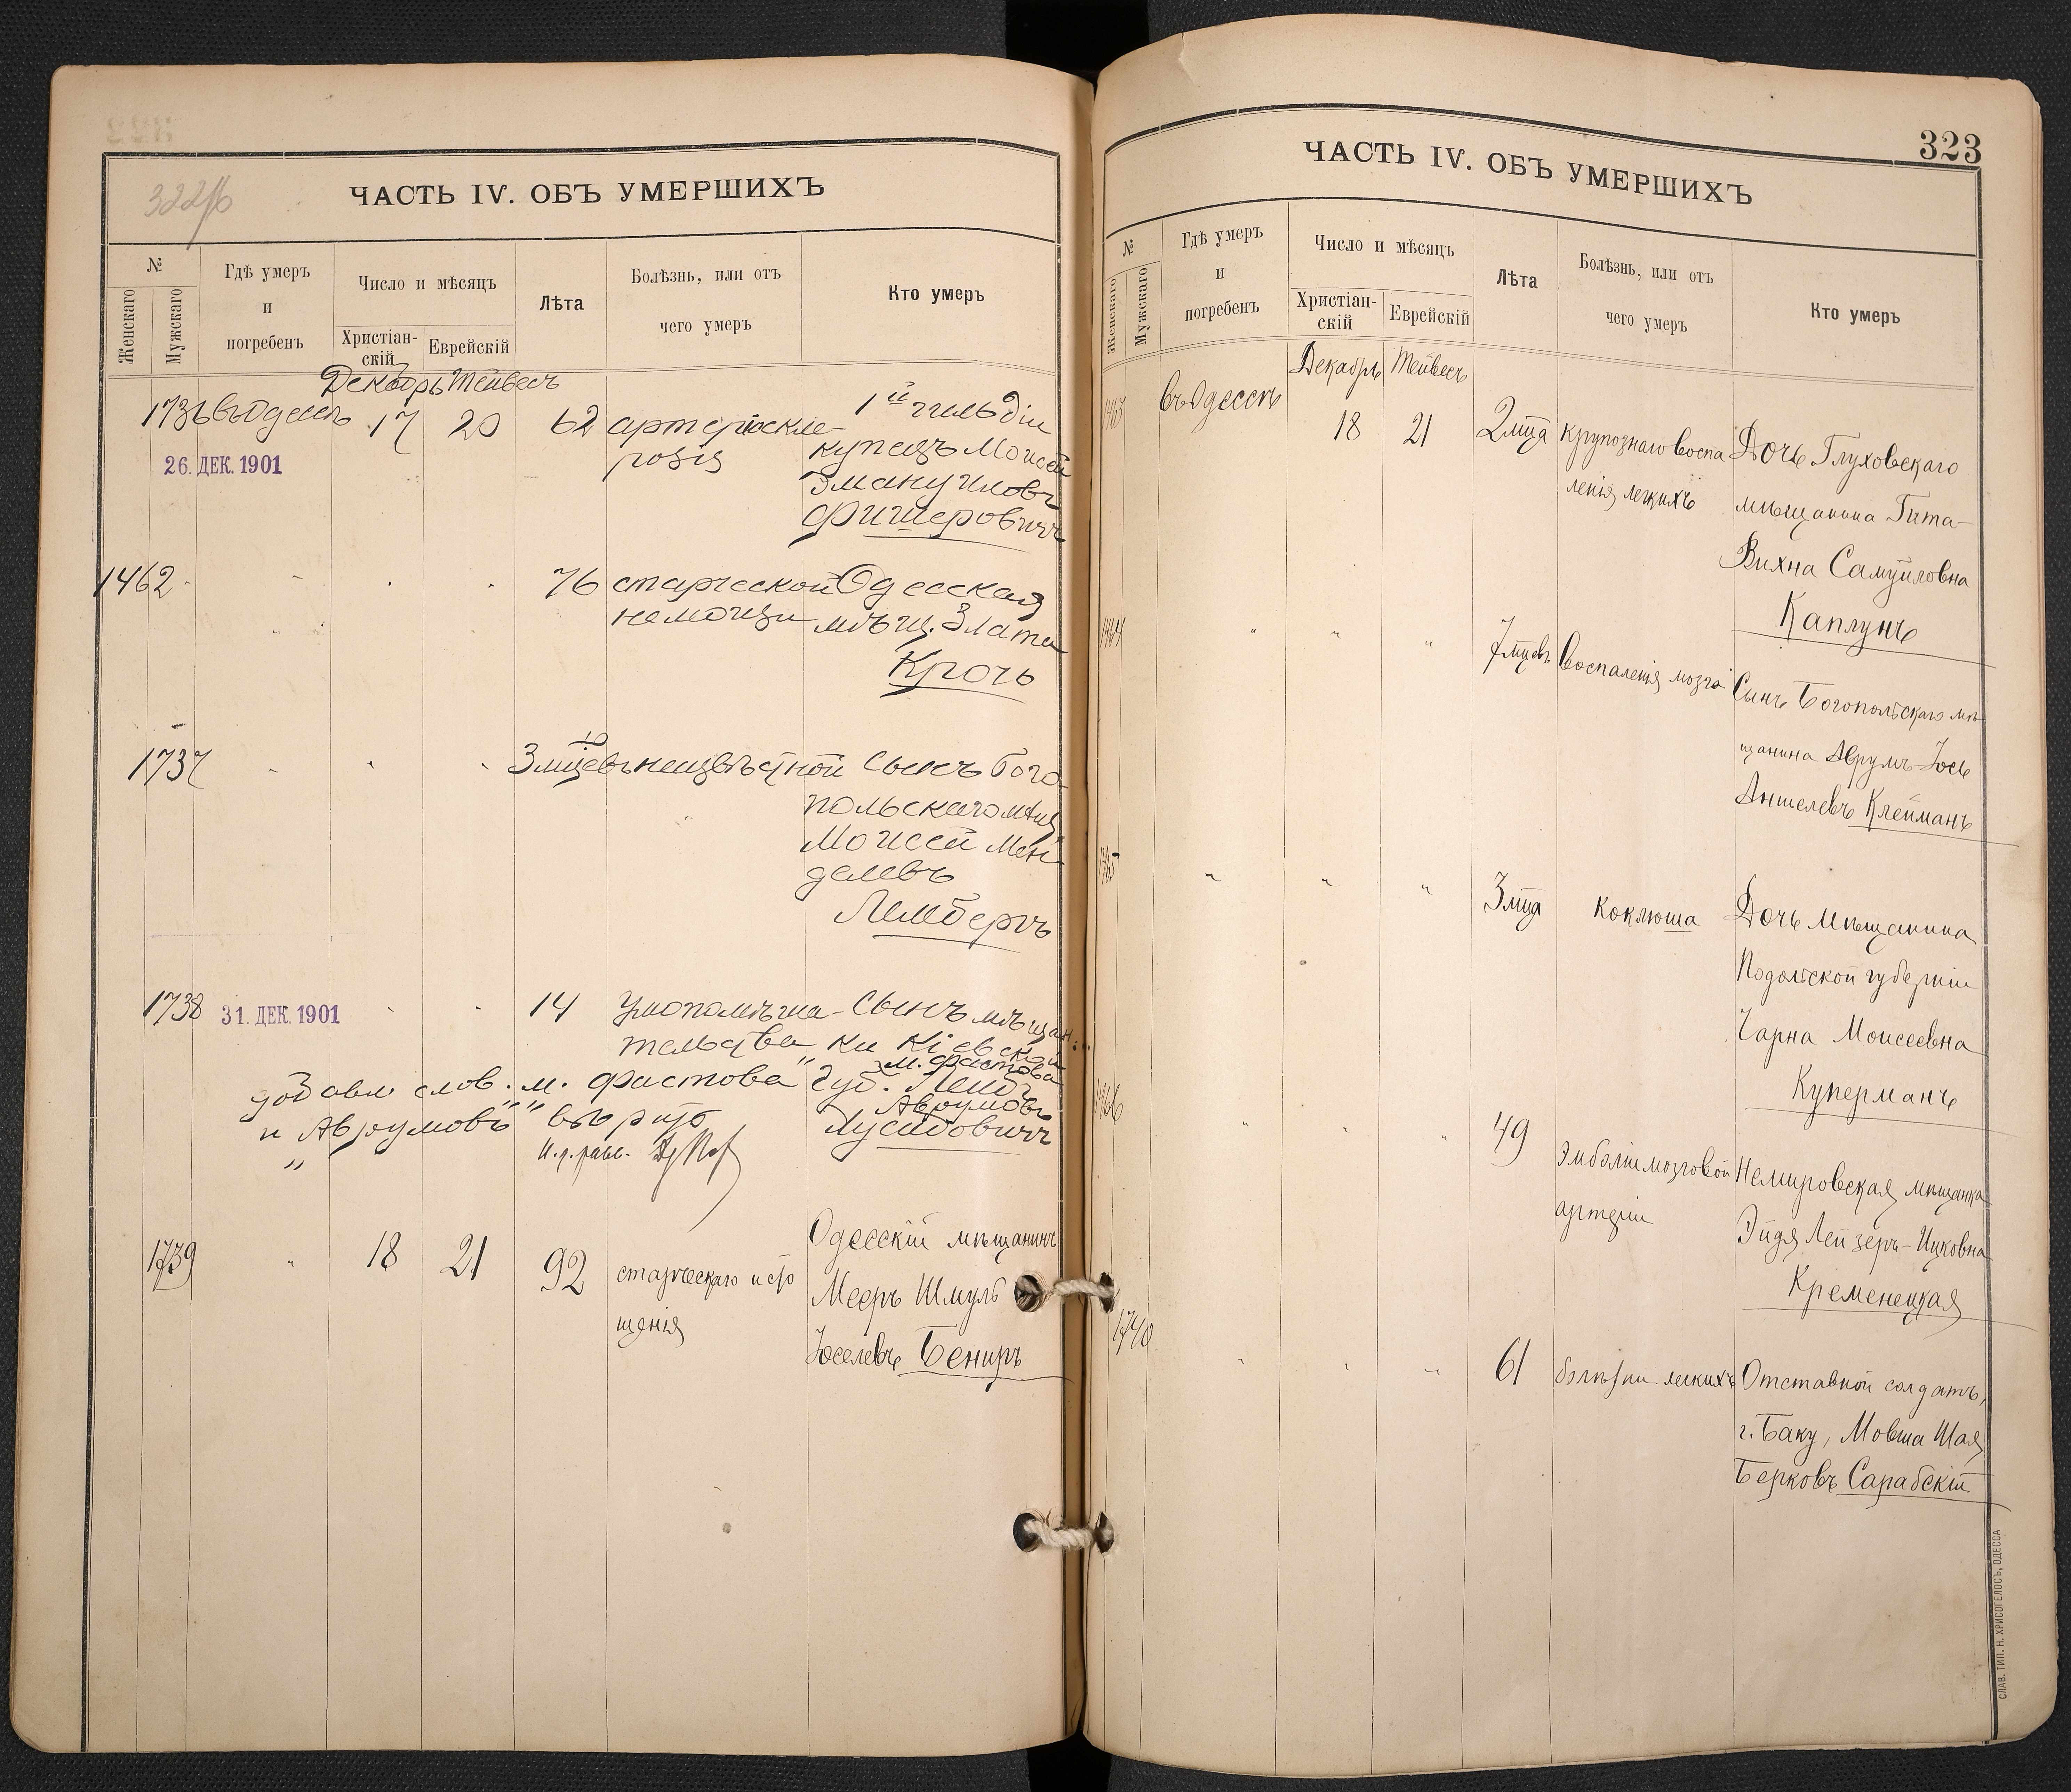 322/б
ЧАСТЬ IV. ОБЪ УМЕРШИХЪ
№
Женскаго
Мужскаго
Гдѣ умеръ
и
погребенъ
Число и мѣсяцъ
Христіан-
скій
Еврейскій
Лѣта
Болѣзнь, или отъ
чего умеръ
Кто умеръ
Декабрь Тейвесъ
1736 въ Одессѣ 17 20 62 артеріоскле- 1й гильдіи
розія купецъ Моисей
26. ДЕК. 1901
Эмануиловъ
Фишеровичъ
1462 76 старческой Одесская
немощи мѣщ. Злата
Крочь
1737 3 мцевъ неизвѣстной Сынъ Бого-
польскаго мѣщ
Моисей Мен-
делевъ
Лембергъ
1738 31. ДЕК. 1901 14 умопомѣша- Сынъ мѣщан-
тельства ки Кіевской
м. Фастова
добавл слов. "м. Фастова" губ. Лейбъ
Аврумовъ
и "Аврумовъ" вѣрно
Лусидовичъ
1739 18 21 92 старческаго исто Одесскій мѣщанинъ
щенія Мееръ Шмуль
Іоселевъ Бениръ
323
ЧАСТЬ IV. ОБЪ УМЕРШИХЪ
№
Женскаго
Мужскаго
Гдѣ умеръ
и
погребенъ
Число и мѣсяцъ
Христіан-
скій
Еврейскій
Лѣта
Болѣзнь, или отъ
чего умеръ
Кто умеръ
Декабрь Тейвесъ
1463 въ Одессѣ 18 21 2 мца крупознаго воспа Дочь Глуховскаго
ленія легкихъ мѣщанина Гита-
Вихна Самуиловна
Каплунъ
1464 " " " 7 мцевъ воспаленія мозга Сынъ Богопольскаго мѣ-
щанина Аврумъ-Іось
Аншелевъ Клейманъ
1465 " " " 3 мца коклюша Дочь мѣщанина
Подольской губерніи
Чарна Моисеевна
Куперманъ
1466 " " " 49 эмболіи мозговой Немировская мѣщанка
артеріи Эйдя Лейзеръ-Ицковна
Кременецкая
1740 " " " 61 болѣзни легкихъ Отставной солдатъ,
г. Баку, Мовша Шая
Берковъ Сарабскій
СЛАВ. ТИП. Н. ХРИСОГЕЛОСЪ, ОДЕССА